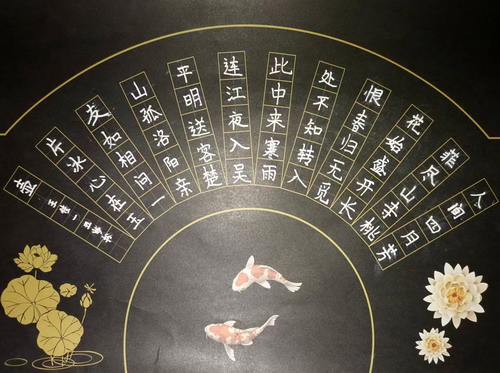 人间四月芳
菲尽山寺桃
花始盛开长
恨春归无觅
处不知转入
此中来寒雨
连江夜入吴
平明送客楚
山孤洛阳亲
友如相问一
片冰心在玉
壶